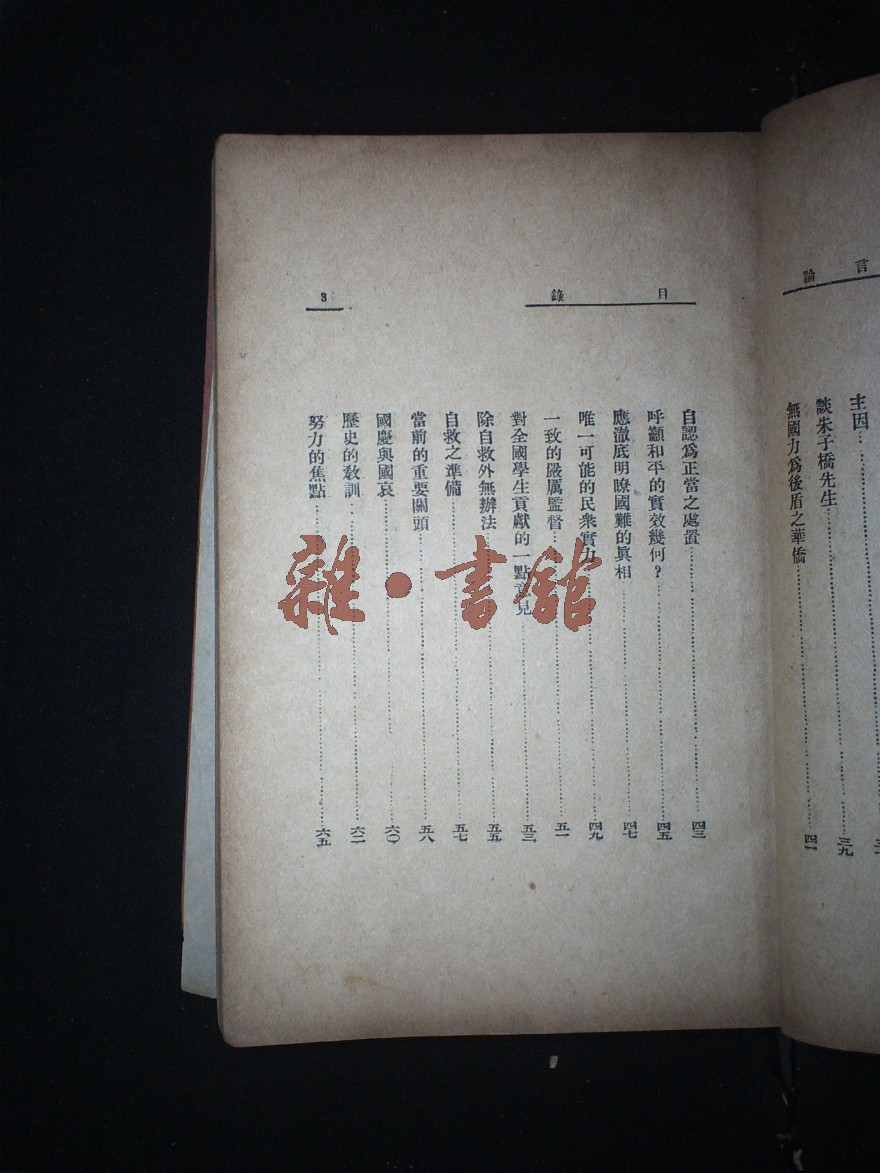 言論
主因
談朱子橋先生 三九
無國力爲後盾之華僑 四一
目錄
3
自認爲正當之處置 四三
呼籲和平的實效幾何？ 四五
應澈底明瞭國難的眞相 四七
唯一可能的民衆實力 四九
一致的嚴厲監督 五一
對全國學生貢獻的一點意見 五三
除自救外無辦法 五五
自救之準備 五七
當前的重要關頭 五八
國慶與國哀 六〇
歷史的敎訓 六二
努力的焦點 六五
雜·書館